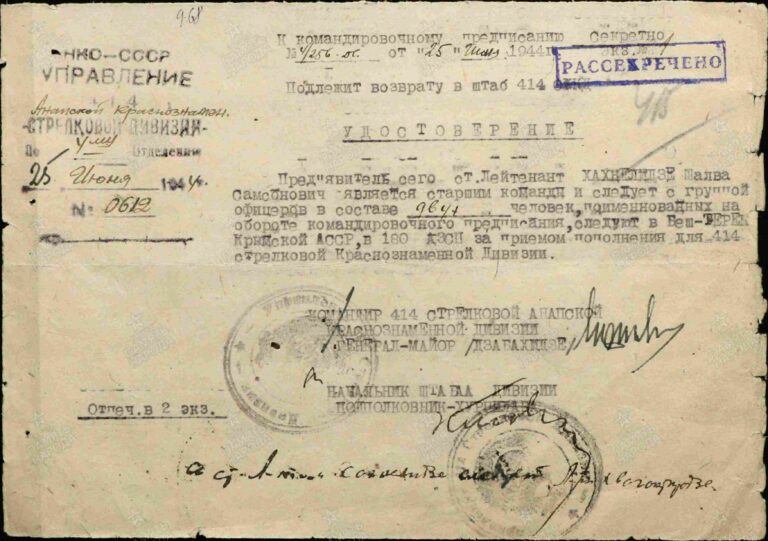 968
К командировочному предписанию Секретно
№ 4/256.ос. от "25" Июня 1944г. экз.№ 1
РАССЕКРЕЧЕНО
НКО-СССР
УПРАВЛЕНИЕ
Подлежит возврату в штаб 414
Анапской Краснознамен.
СТРЕЛКОВОЙ ДИВИЗИИ
УДОСТОВЕРЕНИЕ
Отделение
25 Июня 1944
№ 0612
Пред"явитель сего ст.Лейтенант ХАХНЕЛИДЗЕ Шалва
Самсонович является старшим команды и следует с группой
офицеров в составе двух человек,поименнованных на
обороте командировочного предписания,следуют в Беш-ТЕРЕК
Крымской АССР,в 180 ДЗСП за приемом пополнения для 414
стрелковой Краснознаменной Дивизии.
КОМАНДИР 414 СТРЕЛКОВОЙ АНАПСКОЙ
КРАСНОЗНАМЕННОЙ ДИВИЗИИ
ГЕНЕРАЛ-МАЙОР /ДЗАБАХИДЗЕ/
НАЧАЛЬНИК ШТАБА ДИВИЗИИ
ПОДПОЛКОВНИК
Отпеч.в 2 экз.